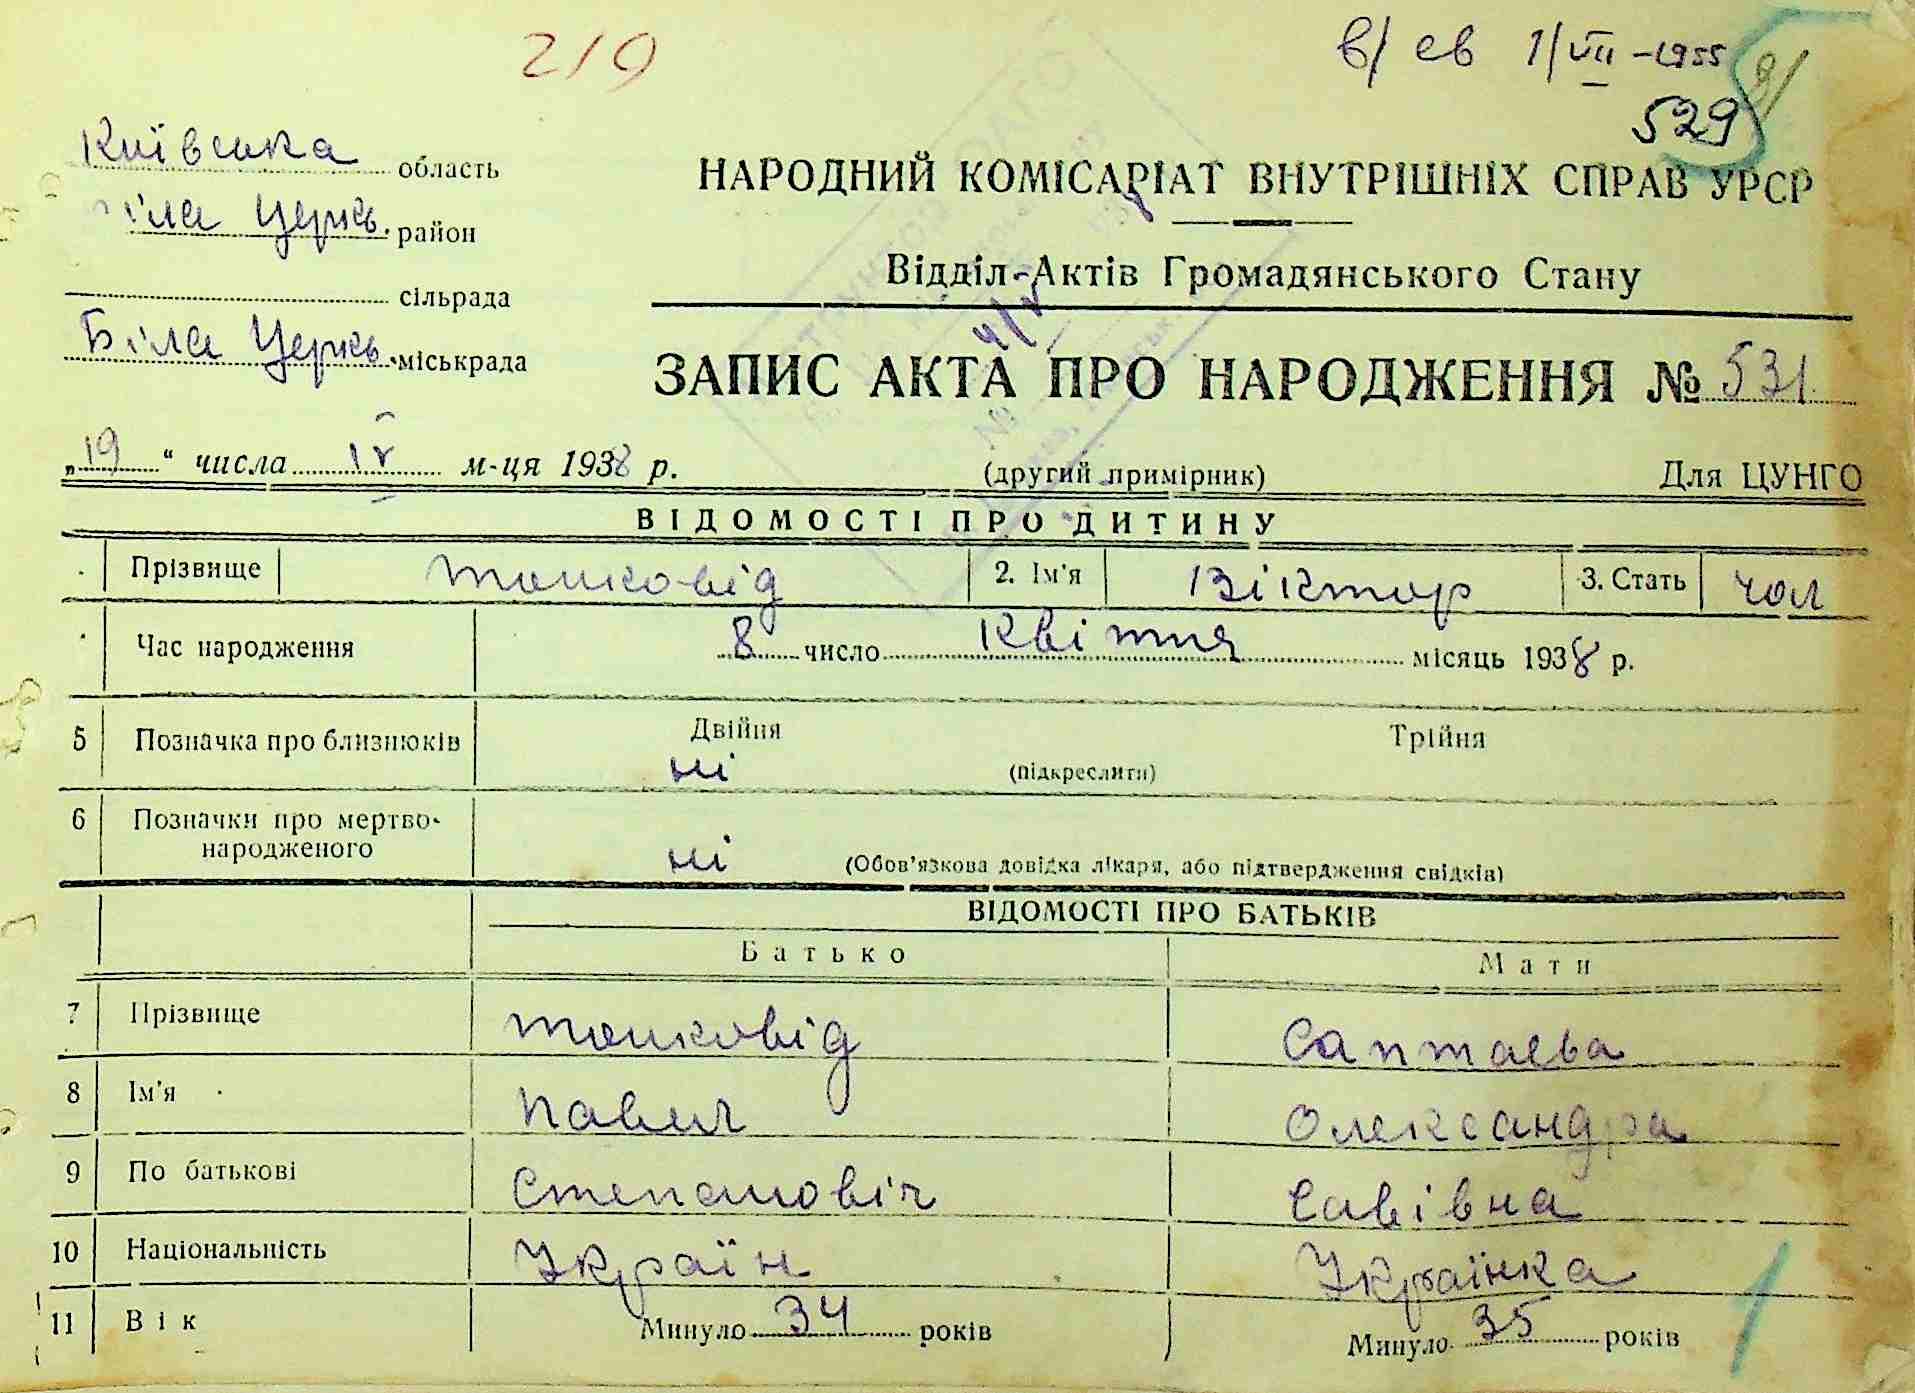 219
в/ св 1/VII -1955
529
Київська область
Біла Церкв. район
сільрада
Біла Церкв. міськрада
НАРОДНИЙ КОМІСАРІАТ ВНУТРІШНІХ СПРАВ УРСР
Відділ Актів Громадянського Стану
ЗАПИС АКТА ПРО НАРОДЖЕННЯ № 531
„19“ числа IV м-ця 1938 р.
(другий примірник)
Для ЦУНГО
ВІДОМОСТІ ПРО ДИТИНУ
Прізвище Топковід 2. Ім'я Віктор 3. Стать чол
Час народження 8 число Квітня місяць 1938 р.
5 Позначка про близнюків Двійня Трійня
ні (підкреслити)
6 Позначки про мертво-
народженого ні (Обов'язкова довідка лікаря, або підтвердження свідків)
ВІДОМОСТІ ПРО БАТЬКІВ
Батько Мати
7 Прізвище Топковід Саптаєва
8 Ім'я Павил Олександра
9 По батькові Степановіч Савівна
10 Національність Україн Українка
11 Вік Минуло 34 років Минуло 35 років